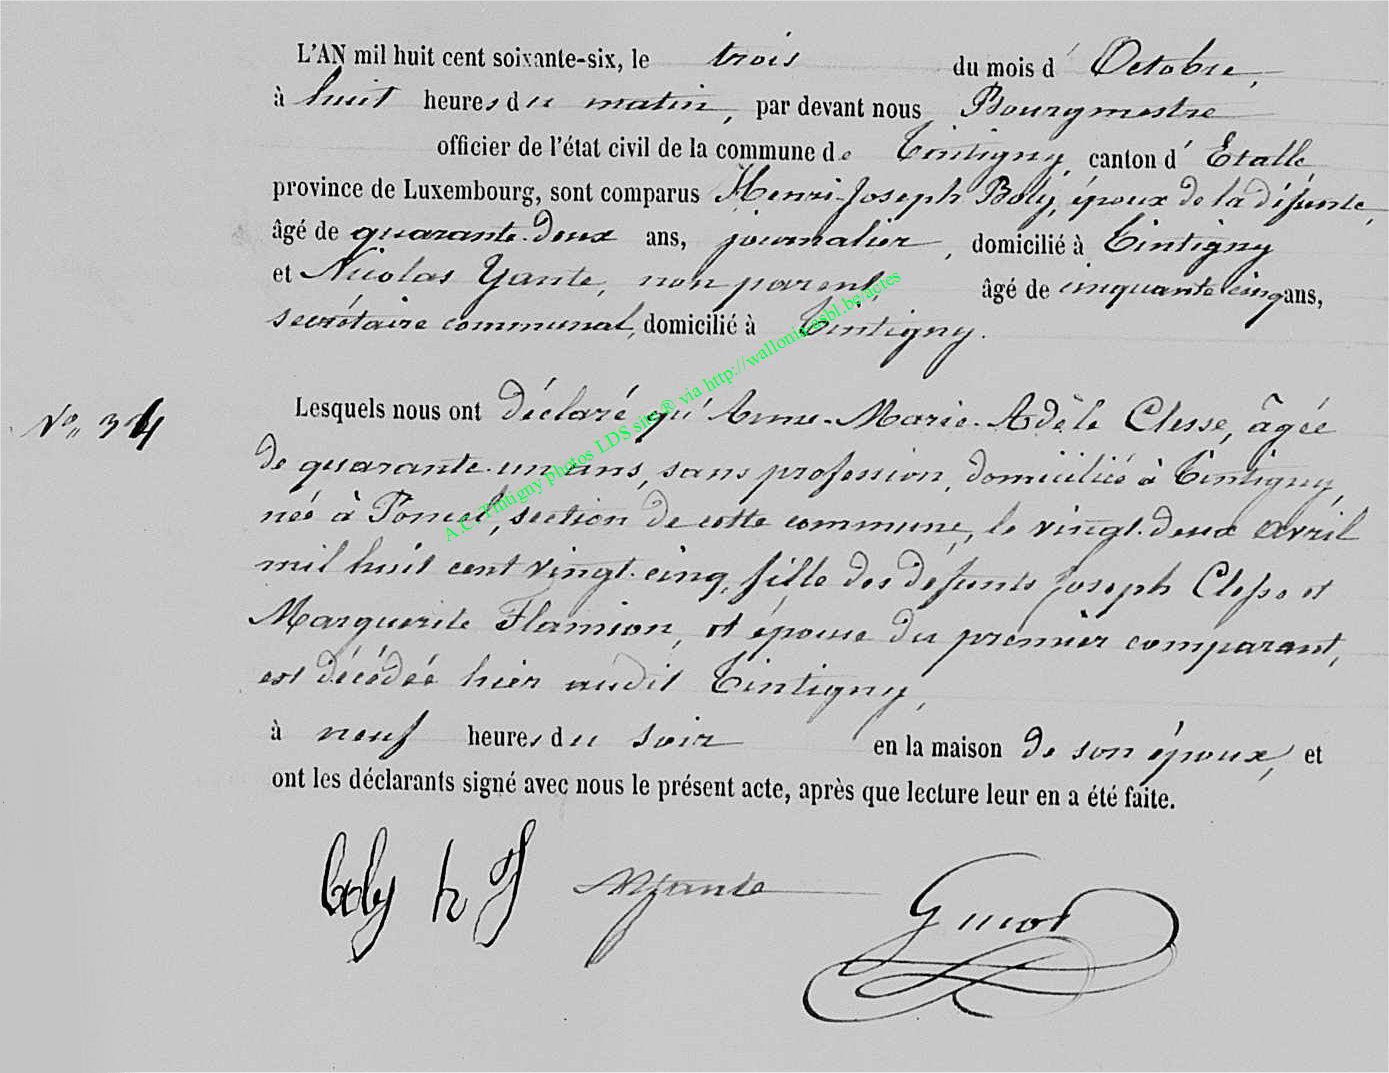 L'AN mil huit cent soixante-six, le trois du mois d' Octobre,
à huit heures du matin, par devant nous Bourgmestre
officier de l'état civil de la commune de Tintigny, canton d' Etalle
province de Luxembourg, sont comparus Henri-Joseph Boly, époux de la défunte,
âgé de quarante-deux ans, journalier, domicilié à Tintigny
et Nicolas Yante, non parent, âgé de cinquante cinq ans,
secrétaire communal, domicilié à Tintigny.
Lesquels nous ont déclaré qu' Anne-Marie-Adèle Clesse, âgée
N° 34
de quarante-un ans, sans profession, domiciliée à Tintigny,
née à Poncel, section de cette commune, le vingt-deux avril
mil huit cent vingt-cinq, fille des défunts Joseph Clesse et
Marguerite Flamion, et épouse du premier comparant,
est décédée hier audit Tintigny,
à neuf heures du soir en la maison de son époux, et
ont les déclarants signé avec nous le présent acte, après que lecture leur en a été faite.
boly h J NYante Guiot
A.C. Tintigny photos LDS site® via http://wallonia-asbl.be/actes